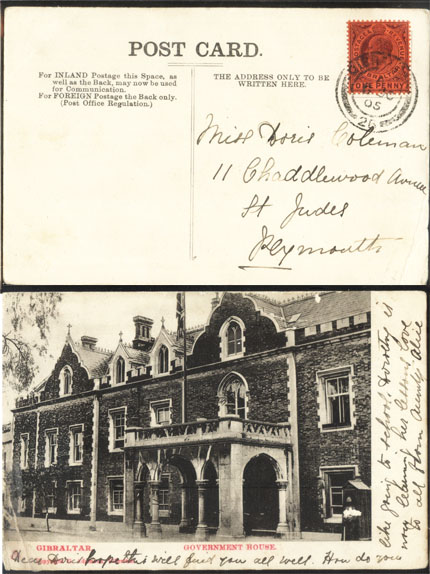 POST CARD.
For INLAND Postage this Space, as
well as the Back, may now be used
for Communication.
For FOREIGN Postage the Back only.
(Post Office Regulation.)
THE ADDRESS ONLY TO BE
WRITTEN HERE.
GIBRALTAR
ONE PENNY
05
Miss Doris Coleman
11 Chaddlewood Avenue
St Judes
Plymouth
GIBRALTAR
GOVERNMENT HOUSE.
Dear Doris hope this will find you all well. How do you
like going to school. Dorothy is
now learning her letters, love
to all from Aunty Alice